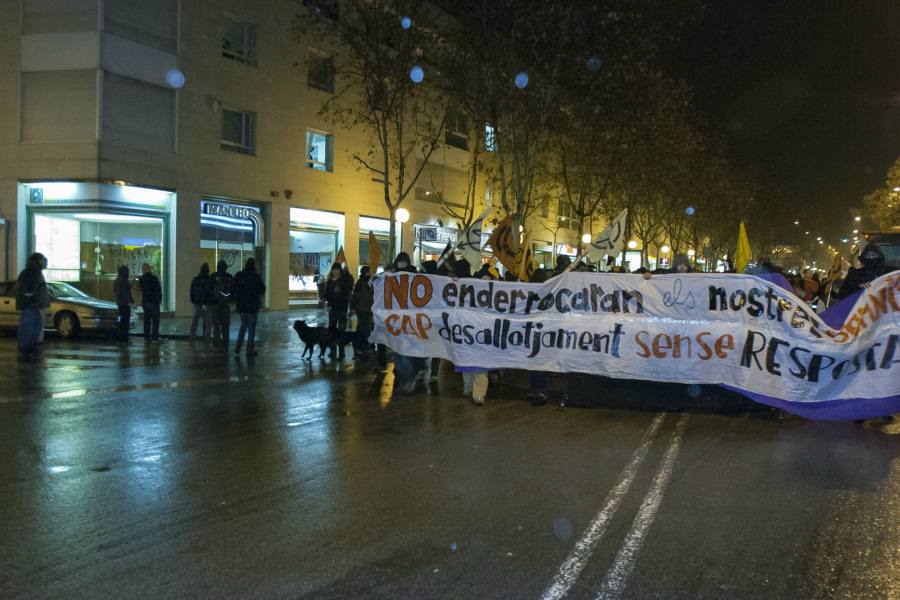 NO enderrocaran els nostres SOMNIS
CAP desallotjament sense RESPOSTA